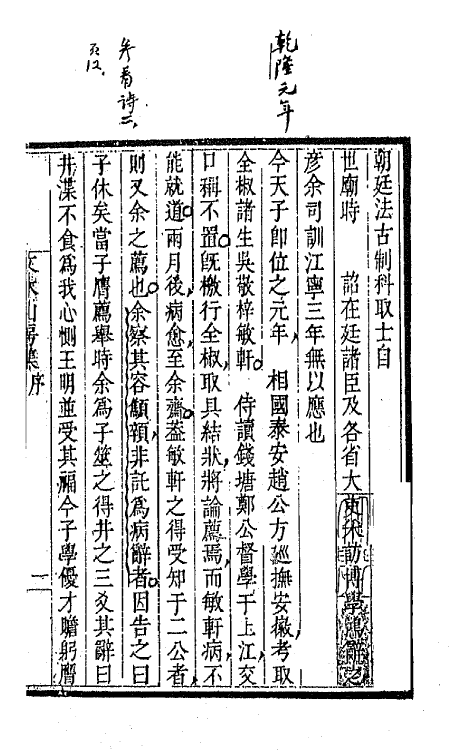 乾隆元年
参看诗二、
页12.
朝廷法古制科取士自
世廟時　詔在廷諸臣及各省大吏採訪博學鴻辭之
彦余司訓江寧三年無以應也
今天子卽位之元年　相國泰安趙公方廵撫安徽考取
全椒諸生吳敬梓敏軒　侍讀錢塘鄭公督學于上江交
口稱不置旣檄行全椒取具結狀將論薦焉而敏軒病不
能就道兩月後病愈至余齋葢敏軒之得受知于二公者
則又余之薦也余察其容顦顇非託爲病辭者因告之曰
子休矣當子膺薦舉時余爲子筮之得井之三爻其辭曰
井渫不食爲我心惻王明並受其福今子學優才贍躬膺
文木山房集序
二